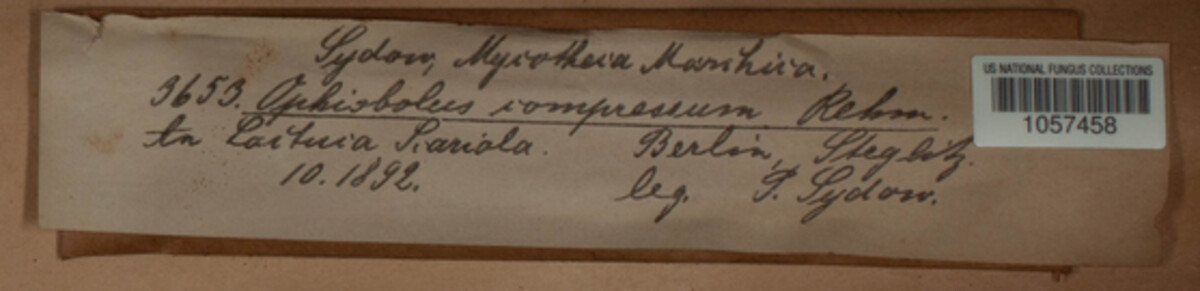 Sydow, Mycotheca Marchica.
3653. Ophiobolus compressum Rehm.
An Lactuca Scariola. Berlin, Steglitz.
10. 1892. leg. P. Sydow.
US NATIONAL FUNGUS COLLECTIONS
1057458